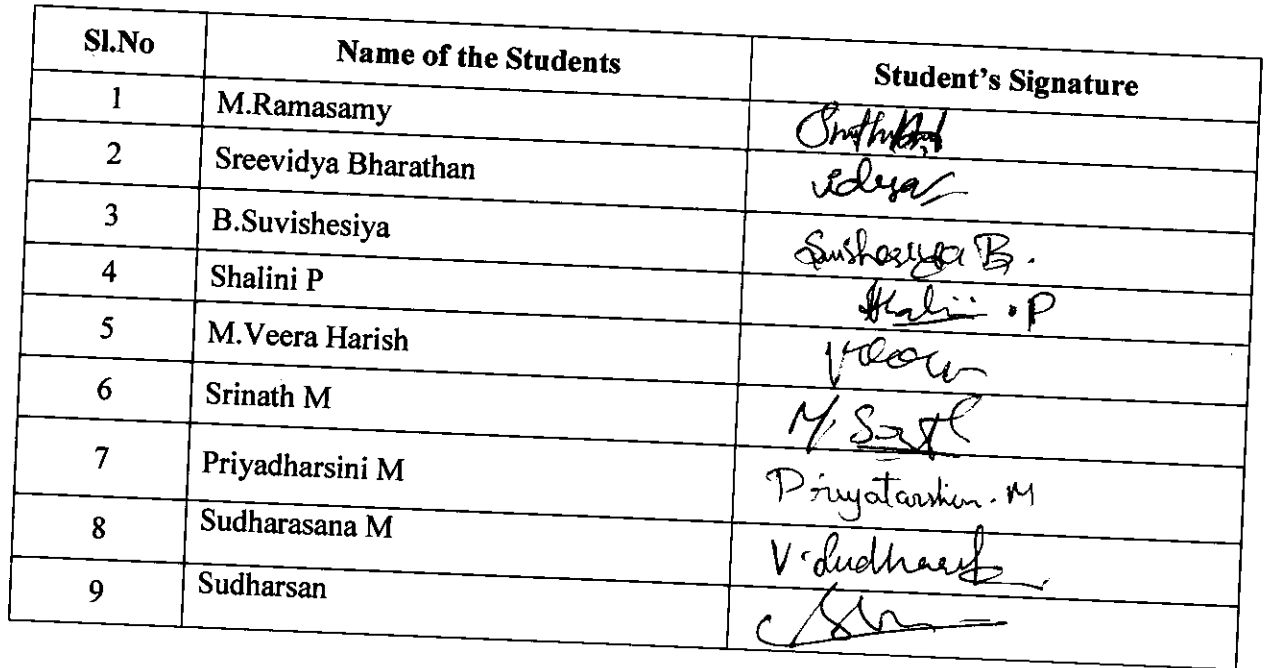 Sl.No Name of the Students Student's Signature
1 M.Ramasamy
2 Sreevidya Bharathan vidya
3 B.Suvishesiya Suvishesiya B.
4 Shalini P Shalini . P
5 M.Veera Harish
6 Srinath M
7 Priyadharsini M Priyatarshini . M
8 Sudharasana M
9 Sudharsan